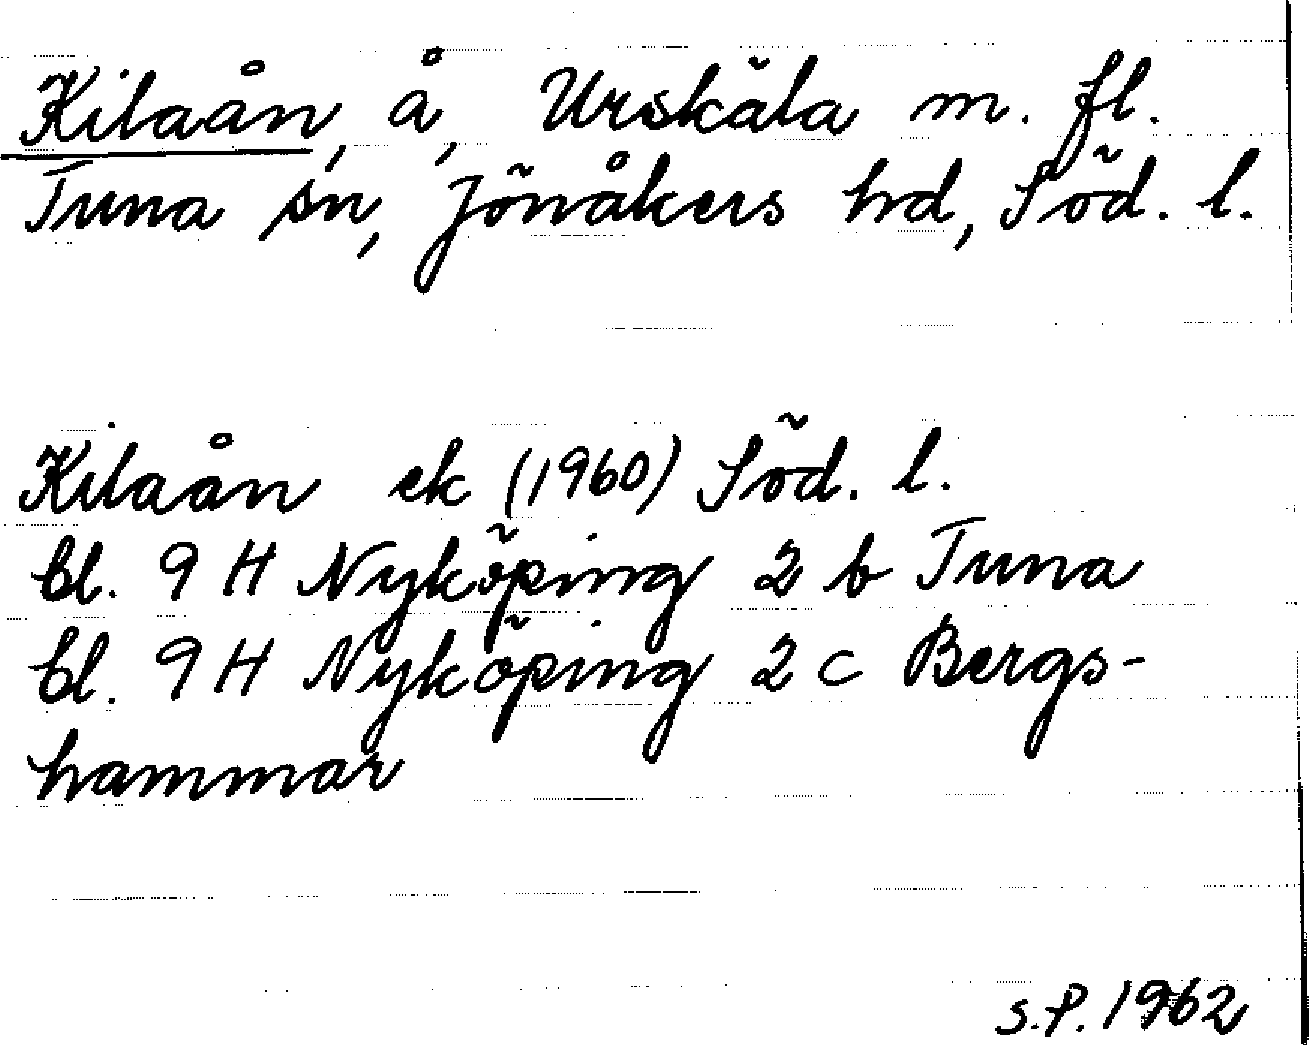 Kilaån, å, Urskäla m. fl.
Tuna sn, Jönåkers hd, Söd. l.
Kilaån ek (1960) Söd. l.
bl. 9 H Nyköping 2 b Tuna
bl. 9 H Nyköping 2 c Bergs-
hammar
S.P. 1962